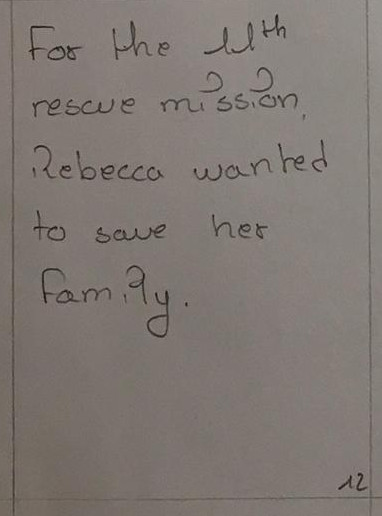 For the 11th
rescue mission,
Rebecca wanted
to save her
family.
12